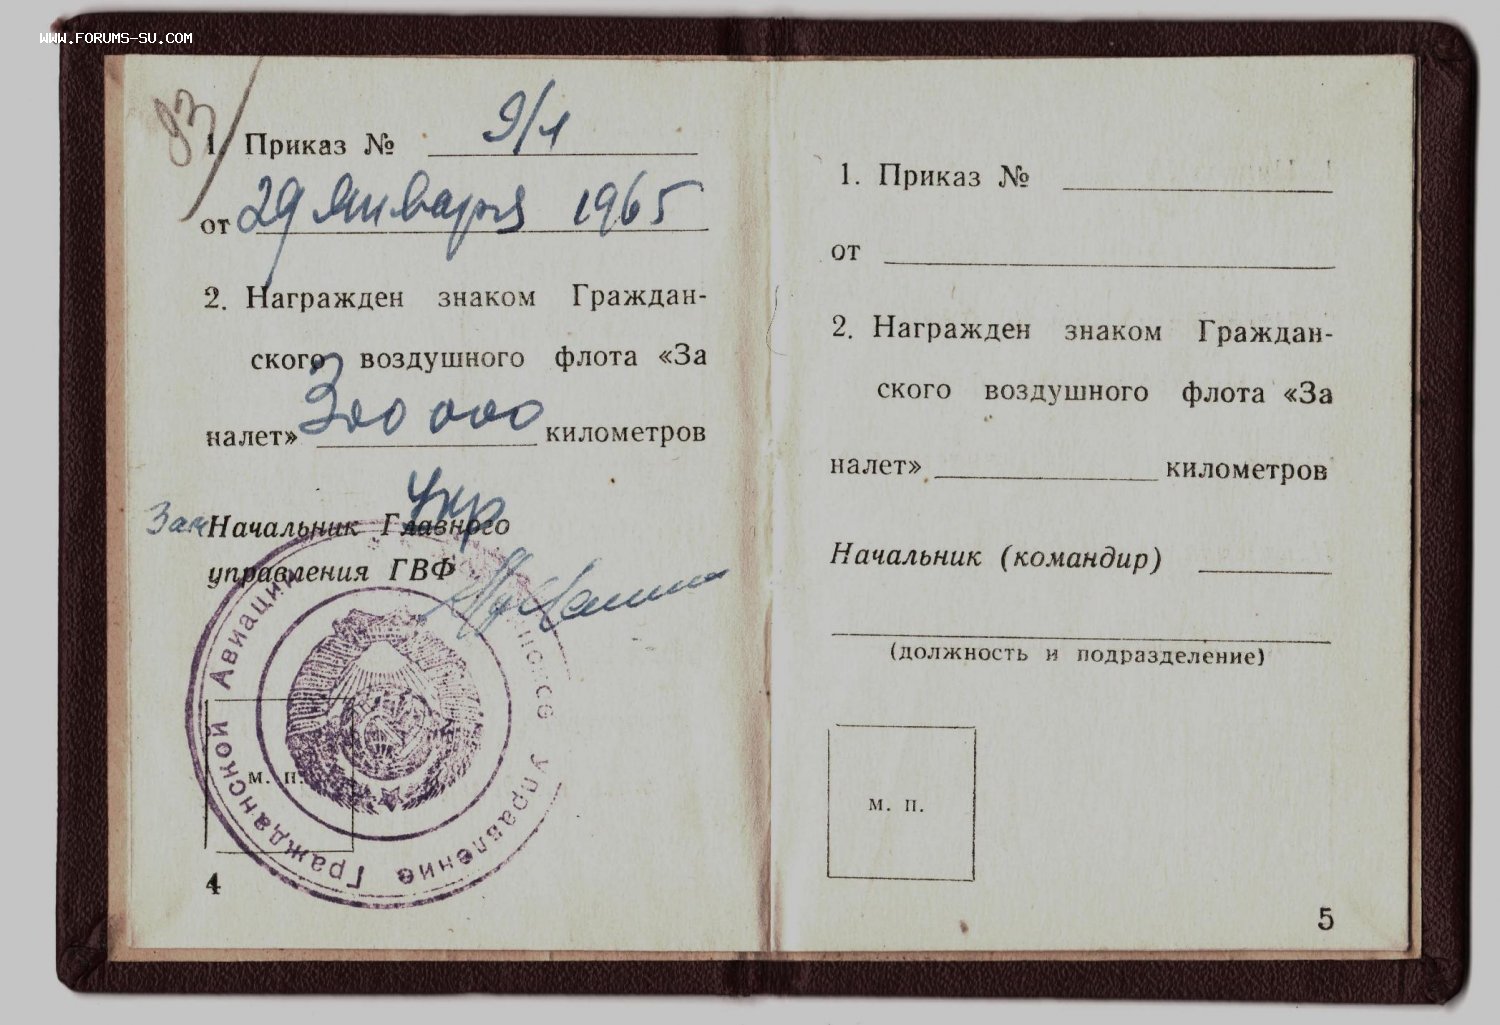 WWW.FORUMS-SU.COM
93
1. Приказ № 9/л
от 29 января 1965
2. Награжден знаком Граждан-
ского воздушного флота «За
налет» 300 000 километров
Укр
Зам Начальник Главного
управления ГВФ
Управление Гражданской Авиации
м. п.
4
1. Приказ №
от
2. Награжден знаком Граждан-
ского воздушного флота «За
налет» километров
Начальник (командир)
(должность и подразделение)
м. п.
5